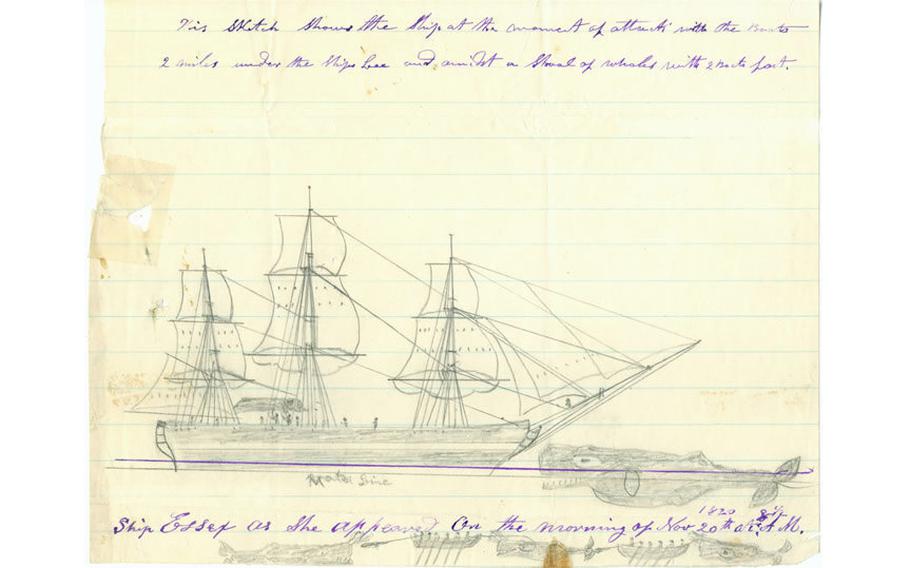 This Sketch Shows the Ship at the moment of attack with the Boats
2 miles under the Ships Lee and amidst a Shoal of whales with 2 boats fast.
Water Line
Ship Essex as She appeared On the morning of Nov 20th 1820 at A.M.